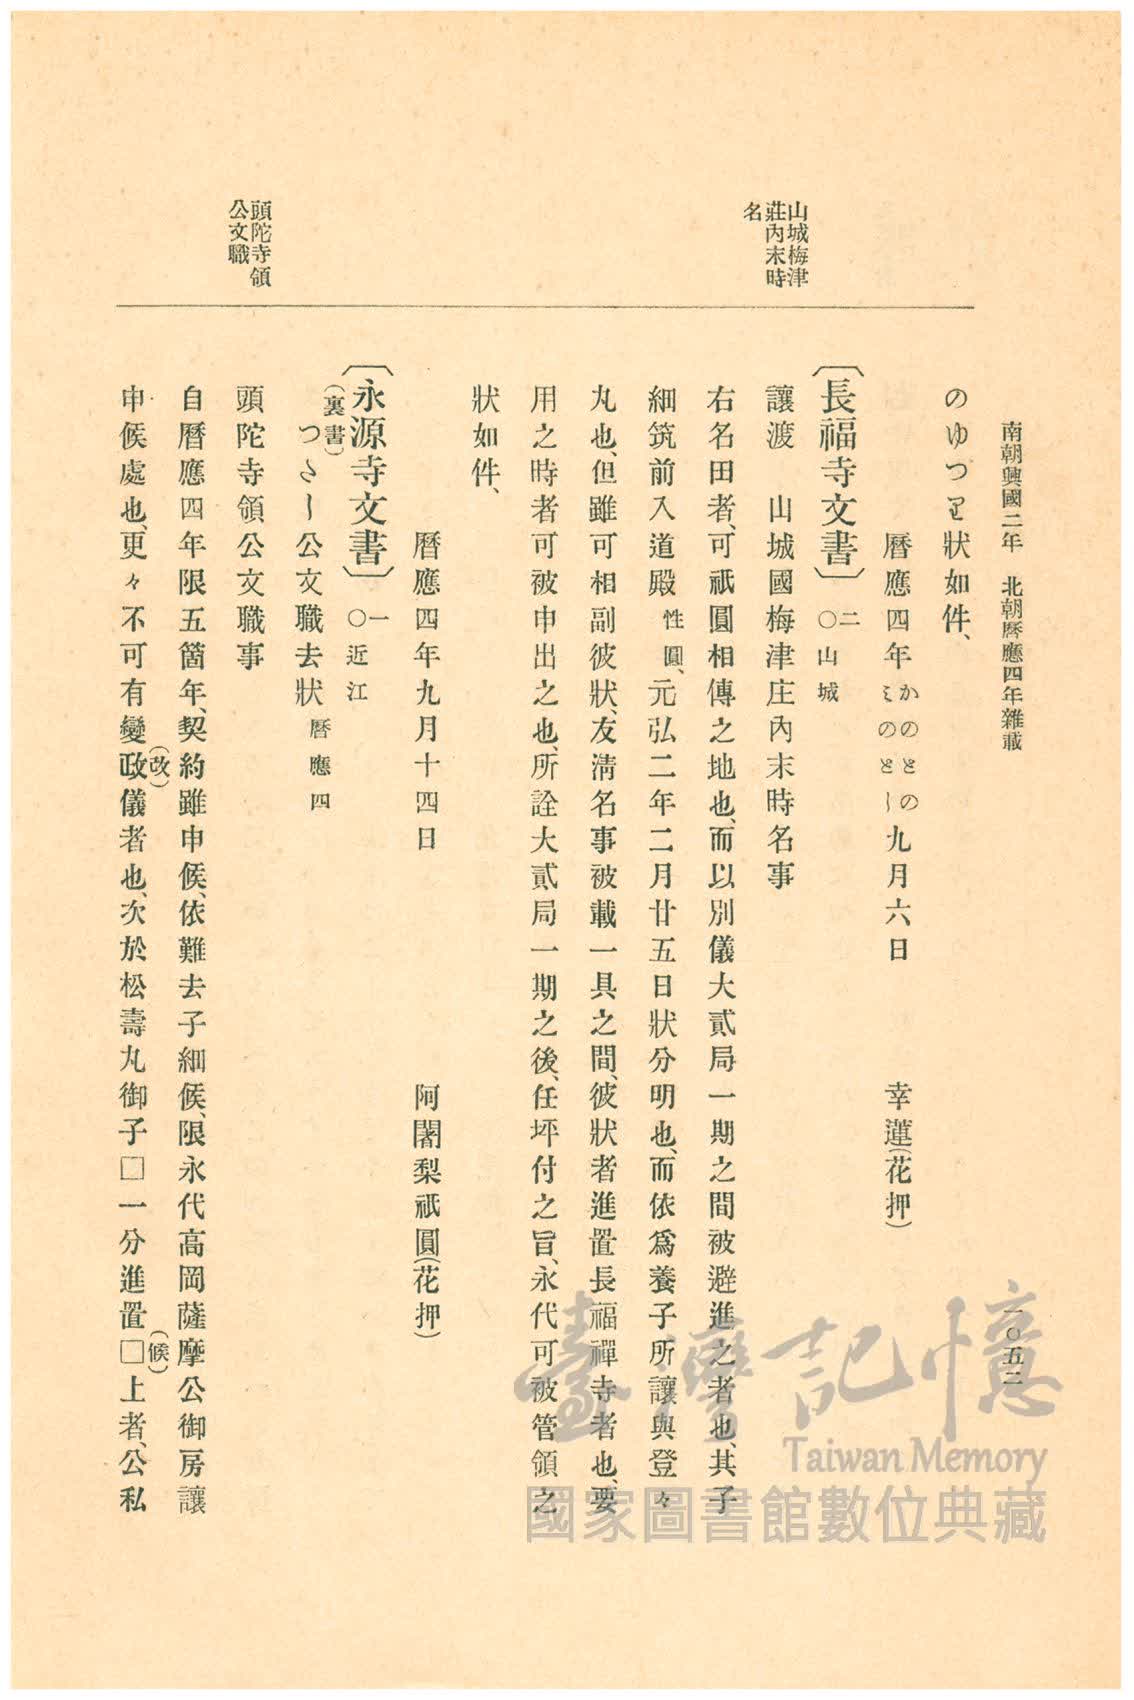 南朝興國二年　北朝曆應四年雜載
一〇五二
のゆつ　狀如件、
曆應四年かのとのミのとし九月六日　　　幸蓮(花押)
山城梅津
莊內末時
名
〔長福寺文書〕二〇山城
讓渡　山城國梅津庄內末時名事
右名田者、可祇圓相傳之地也、而以別儀大貳局一期之間被避進之者也、其子
細筑前入道殿性圓、元弘二年二月廿五日狀分明也、而依爲養子所讓與登々
丸也、但雖可相副彼狀、友淸名事被載一具之間、彼狀者進置長福禪寺者也、要
用之時者可被申出之也、所詮大貳局一期之後、任坪付之旨、永代可被管領之
狀如件、
曆應四年九月十四日　　　阿闍梨祇圓(花押)
〔永源寺文書〕一〇近江
(裏書)
つゝし公文職去狀曆應四
頭陀寺領
公文職
頭陀寺領公文職事
自曆應四年限五箇年、契約雖申候、依難去子細候、限永代高岡薩摩公御房讓
申候處也、更々不可有變政(改)儀者也、次於松壽丸御子□一分進置□(候)上者、公私
臺灣記憶
Taiwan Memory
國家圖書館數位典藏